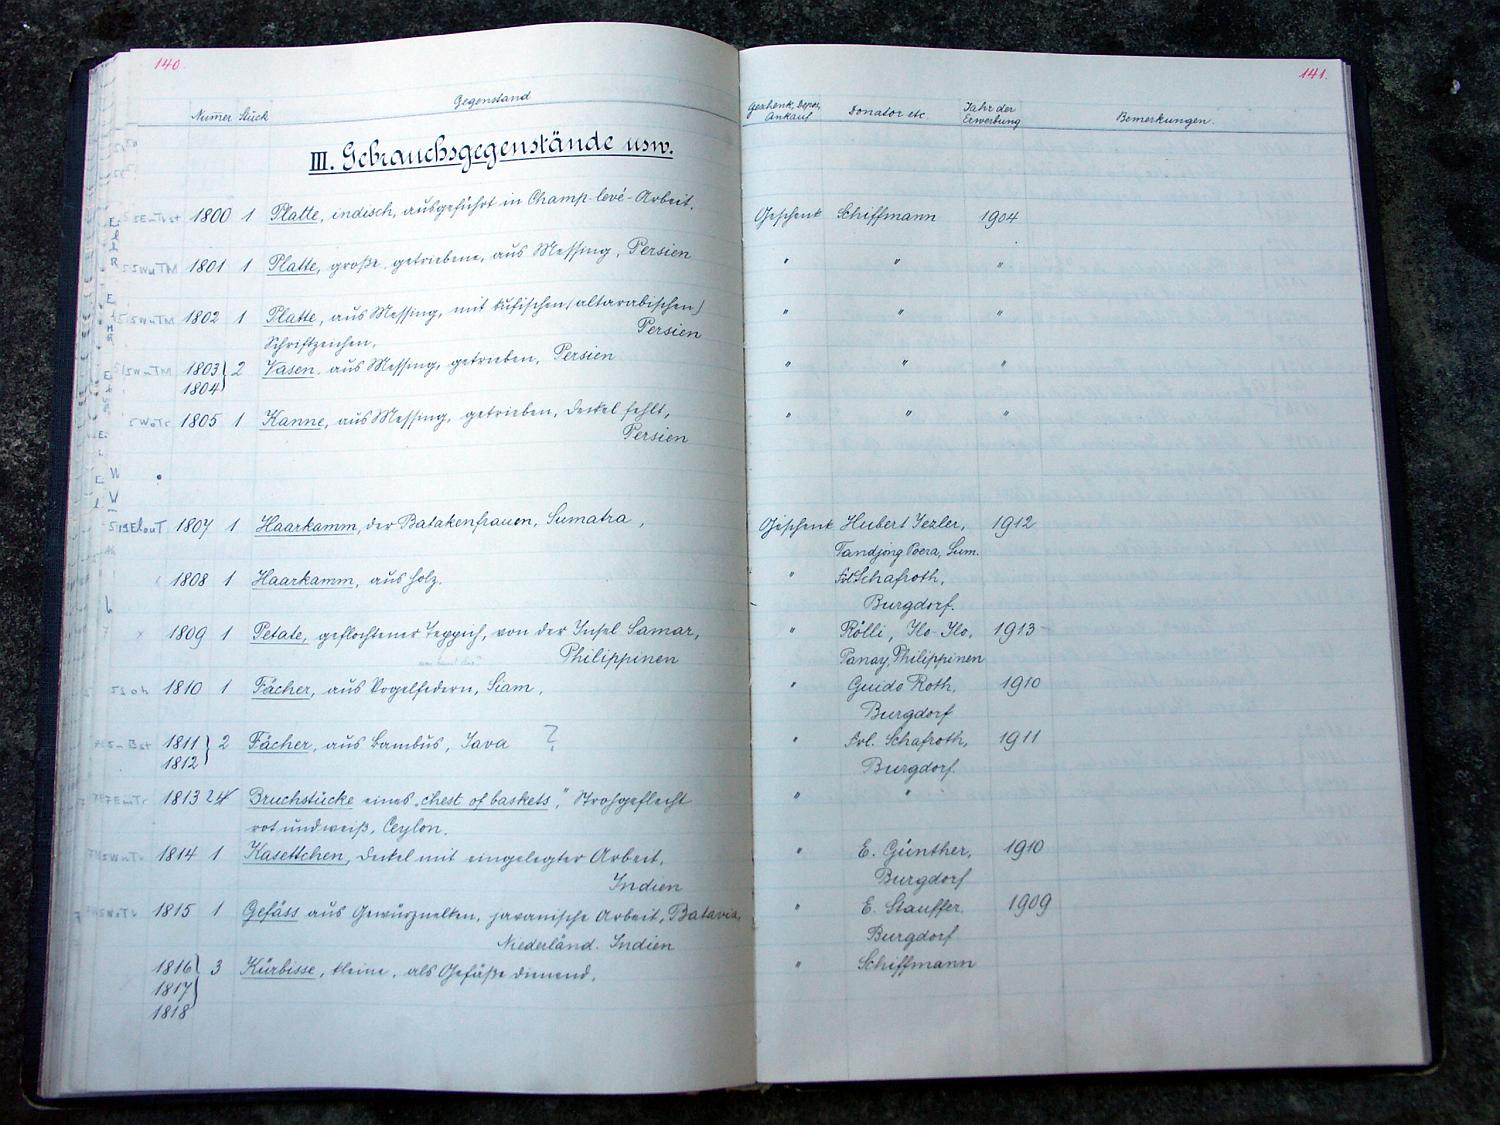 140.
Numer Stück Gegenstand
III. Gebrauchsgegenstände usw.
1800 1 Platte, indisch, ausgeführt in Champ-levé-Arbeit.
1801 1 Platte, große, getriebene, aus Messing, Persien
1802 1 Platte, aus Messing, mit kufischen (altarabischen)
Schriftzeichen. Persien
1803 } 2 Vasen, aus Messing, getrieben, Persien
1804
1805 1 Kanne, aus Messing, getrieben, Deckel fehlt,
Persien
1807 1 Haarkamm, der Batakenfrauen, Sumatra,
1808 1 Haarkamm, aus Holz.
1809 1 Petate, geflochtener Teppich, von der Insel Samar,
Philippinen
1810 1 Fächer, aus Vogelfedern, Siam,
1811 } 2 Fächer, aus Bambus, Java ?
1812
1813 Bruchstücke eines „chest of baskets", Strohgeflecht
rot und weiß, Ceylon.
1814 1 Kasettchen, Deckel mit eingelegter Arbeit,
Indien
1815 1 Gefäss aus Gewürznelken, javanische Arbeit, Batavia,
Niederländ. Indien
1816 } 3 Kürbisse, kleine, als Gefäße dienend.
1817
1818
141.
Geschenk, Depos, Ankauf Donator etc. Jahr der Erwerbung Bemerkungen.
Geschenk Schiffmann 1904
" " "
" " "
" " "
" " "
Geschenk Hubert Jezler, 1912
Tandjong Poera, Sum.
" Frl Schafroth,
Burgdorf.
" Rölli, Ilo-Ilo, 1913
Panay, Philippinen
" Guido Roth, 1910
Burgdorf
" Frl. Schafroth, 1911
Burgdorf.
" "
" E. Günther, 1910
Burgdorf
" E. Stauffer, 1909
Burgdorf
" Schiffmann